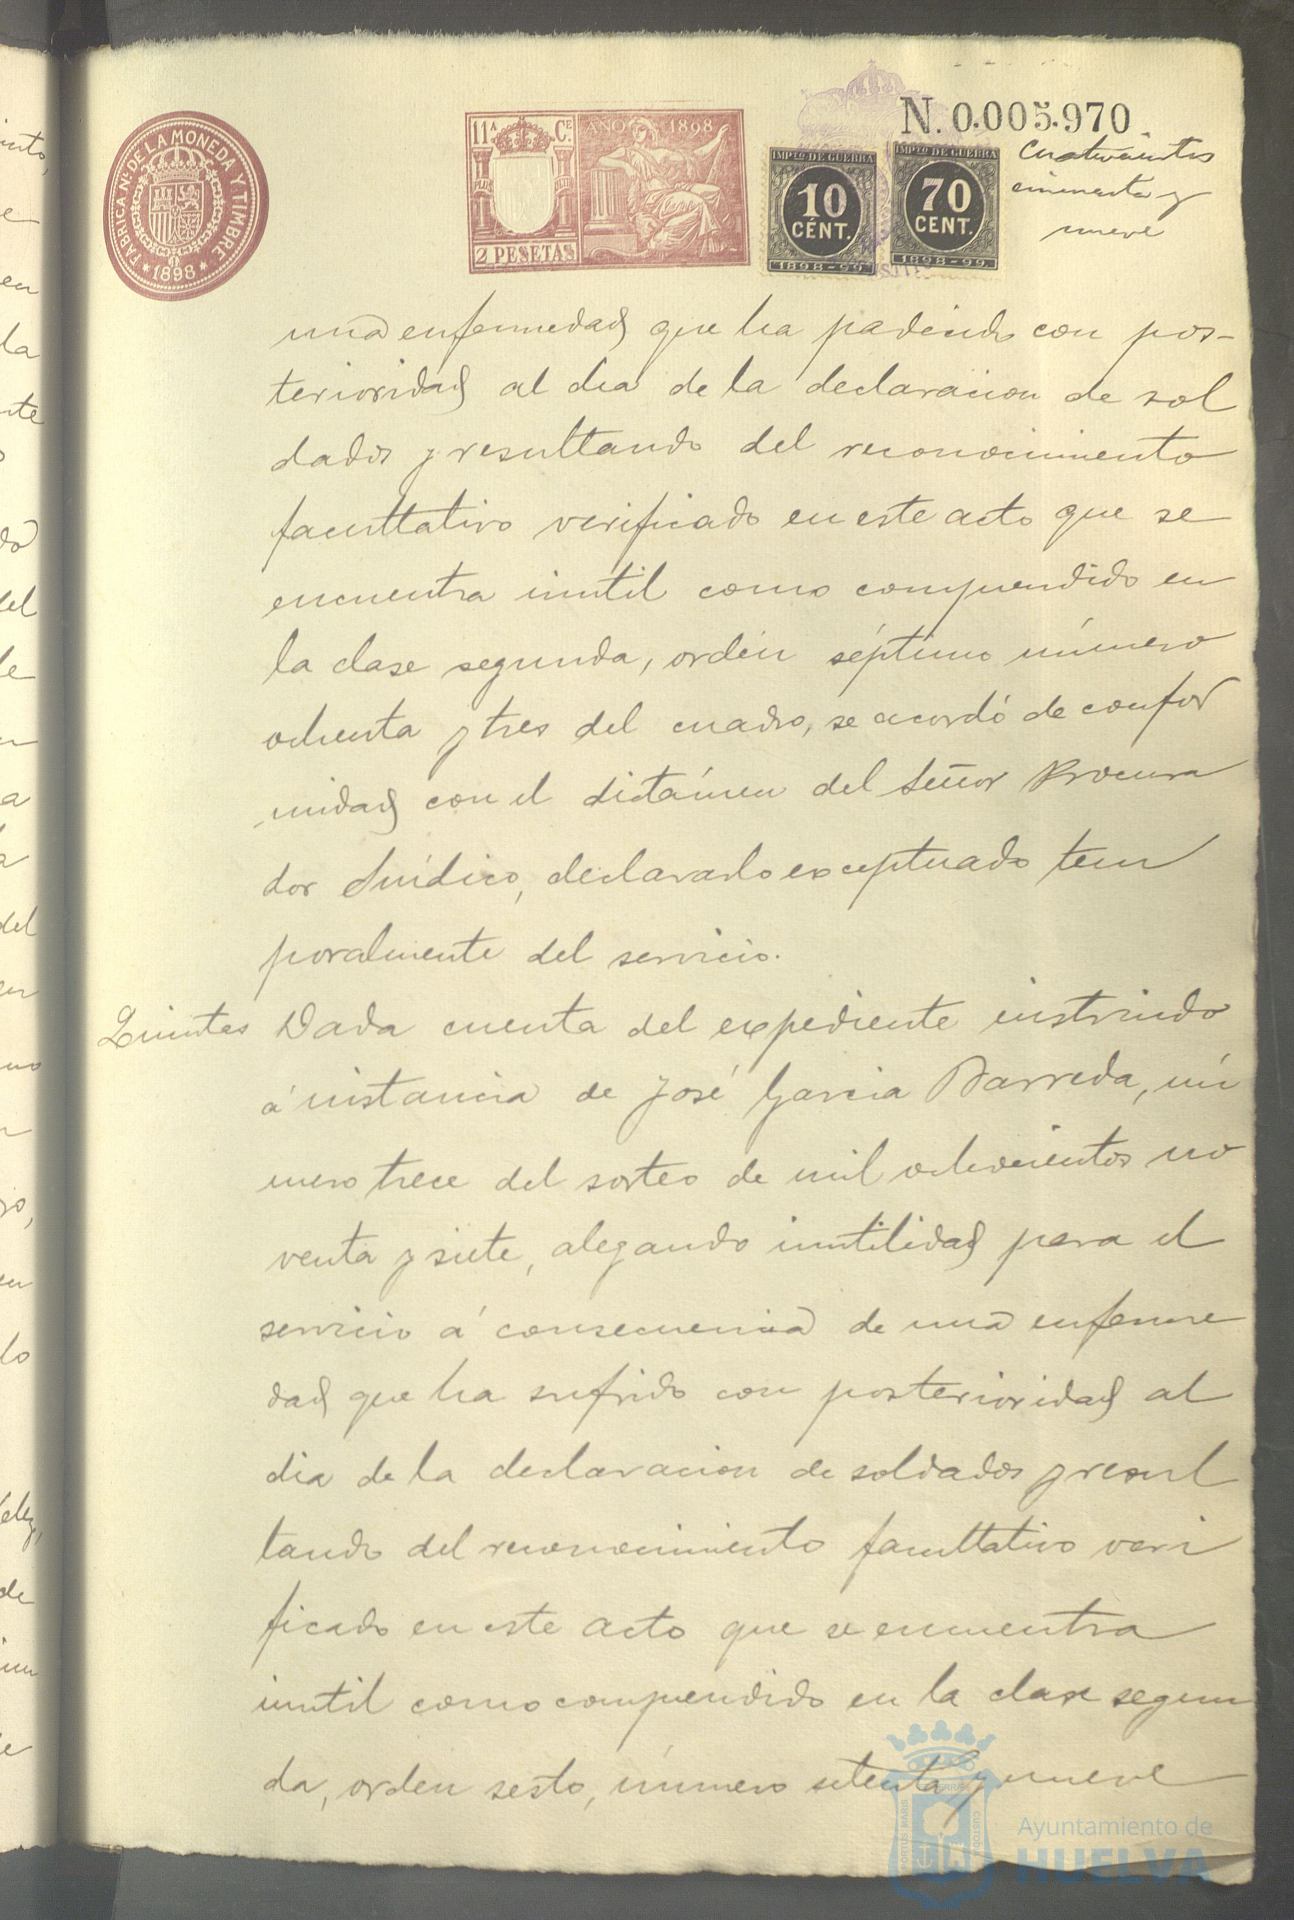 FABRICA N.L DE LA MONEDA Y TIMBRE
* 1898 *
11A CE
AÑO 1898
2 PESETAS
IMPTO DE GUERRA
10
CÉNT.
1898-99
IMPTO DE GUERRA
70
CENT.
1898-99.
N. 0.005.970
Cuatrocientos
cincuenta y
nueve
una enfermedad que ha padecido con pos-
terioridad al dia de la declaracion de sol
dados y resultando del reconocimiento
facultativo verificado en este acto que se
encuentra inutil como comprendido en
la clase segunda, ordén séptimo número
ochenta y tres del cuadro, se acordó de confor
midad con el dictámen del Señor Procura
dor Síndico, declararlo exceptuado tem
poralmente del servicio.
Quintas Dada cuenta del expediente instruido
á instancia de José Garcia Barreda, nú
mero trece del sorteo de mil ochocientos no
venta y siete, alegando inutilidad para el
servicio á consecuencia de una enferme
dad que ha sufrido con posterioridad al
dia de la declaracion de soldados y resul
tando del reconocimiento facultativo veri
ficado en este acto que se encuentra
inutil como comprendido en la clase segun
da, orden sesto, número setenta y nueve
Ayuntamiento de
HUELVA